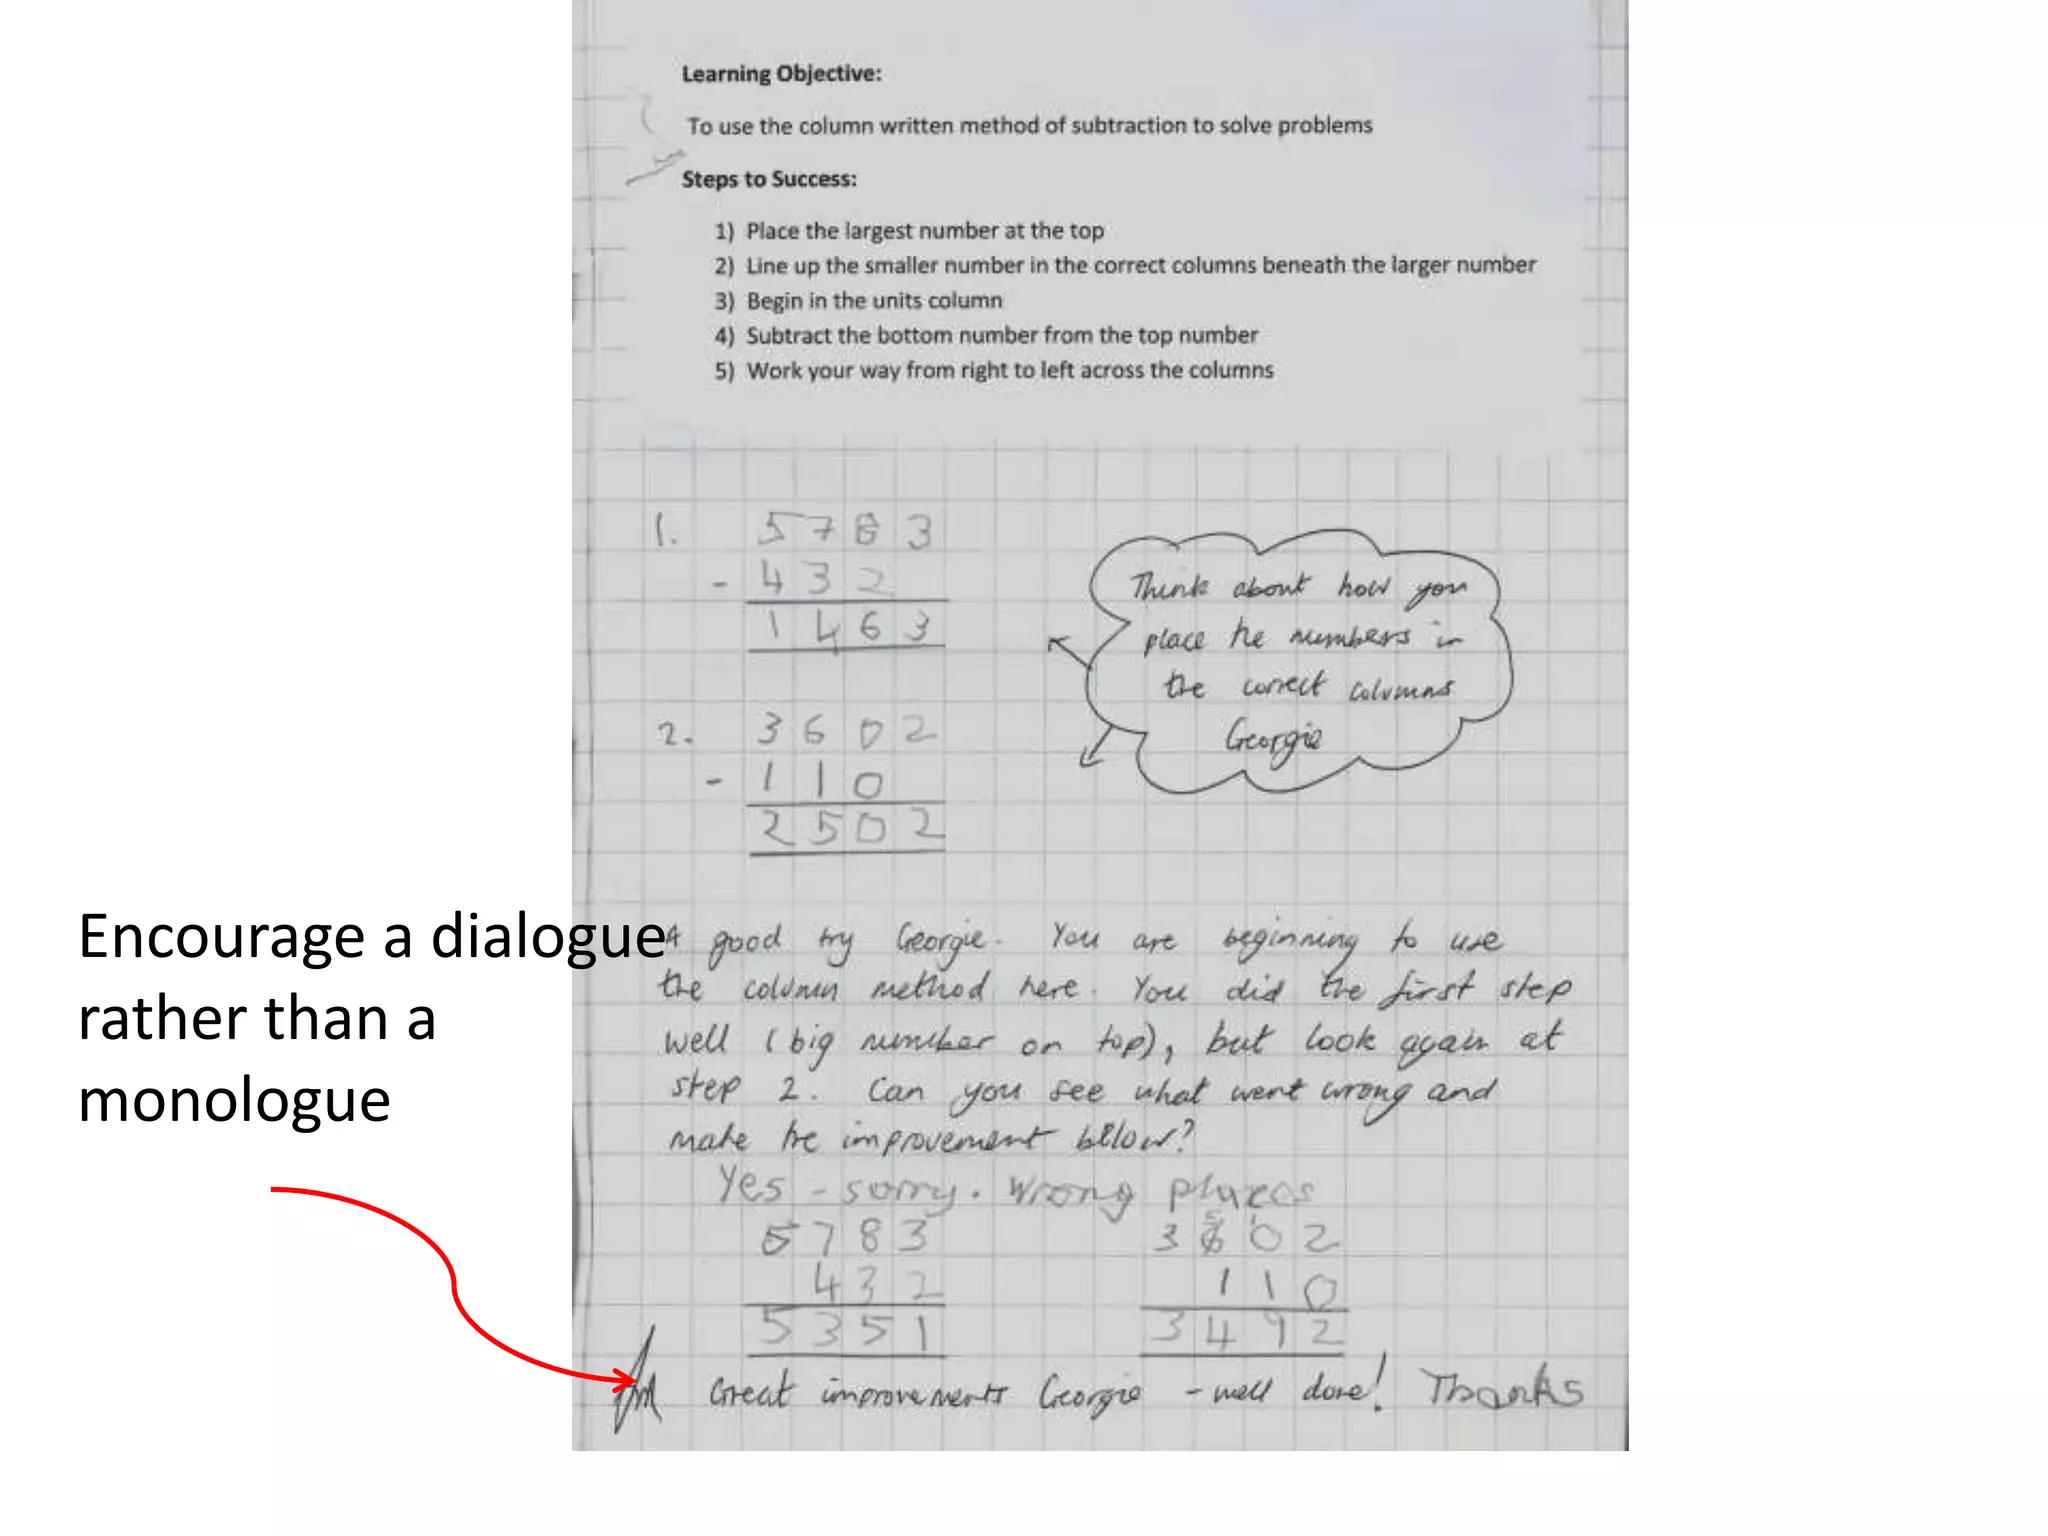 Learning Objective:
To use the column written method of subtraction to solve problems
Steps to Success:
1) Place the largest number at the top
2) Line up the smaller number in the correct columns beneath the larger number
3) Begin in the units column
4) Subtract the bottom number from the top number
5) Work your way from right to left across the columns
1. 5 7 8 3
- 4 3 2
1 4 6 3
Think about how you
place the numbers in
the correct columns
Georgie
2. 3 6 0 2
- 1 1 0
2 5 0 2
Encourage a dialogue
rather than a
monologue
A good try Georgie. You are beginning to use
the column method here. You did the first step
well (big number on top), but look again at
step 2. Can you see what went wrong and
make the improvement below?
Yes - sorry. Wrong places
5 7 8 3
4 3 2
5 3 5 1
5 1
3 6 0 2
1 1 0
3 4 9 2
Great improvements Georgie - well done! Thanks